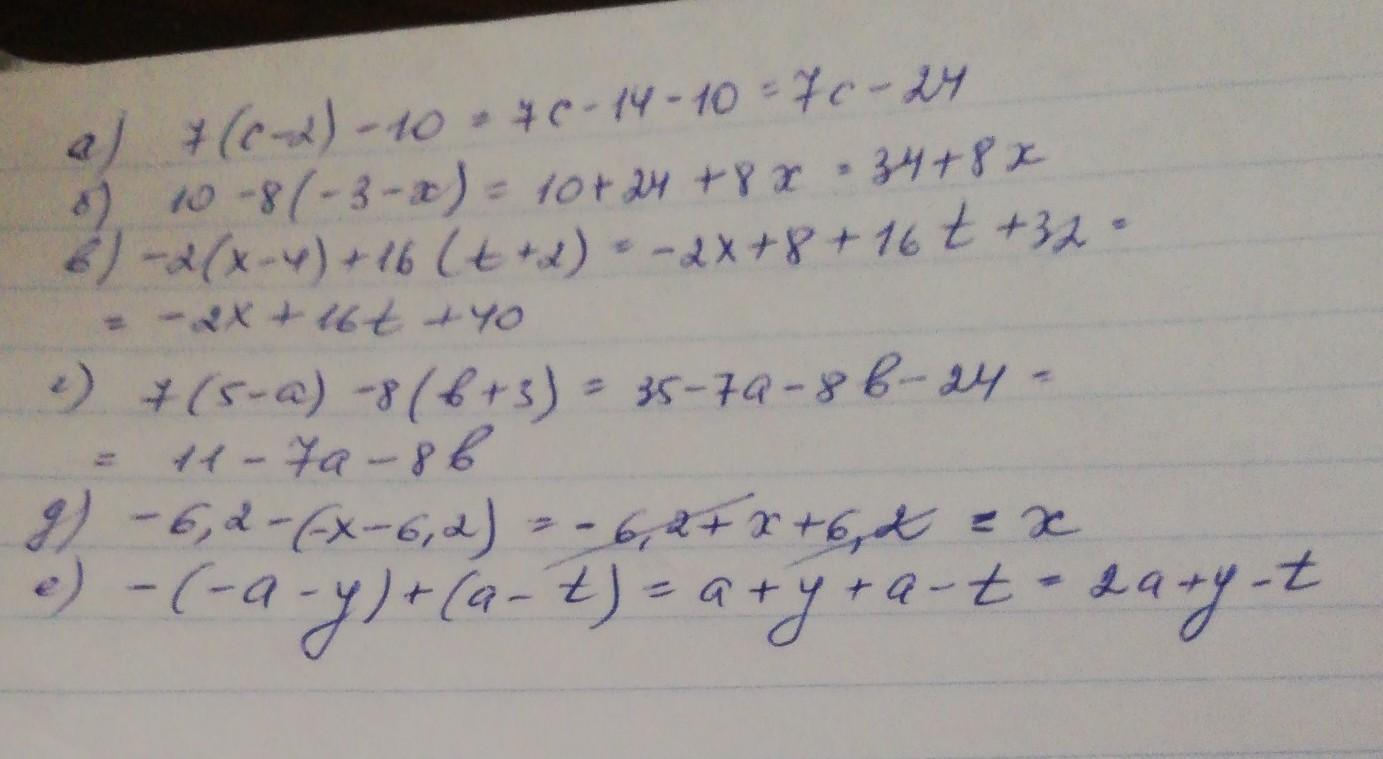 а) 7(c-2)-10 = 7c-14-10 = 7c-24
б) 10-8(-3-x) = 10+24+8x = 34+8x
в) -2(x-4)+16(t+2) = -2x+8+16t+32 =
= -2x+16t+40
г) 7(5-a)-8(b+3) = 35-7a-8b-24 =
= 11-7a-8b
д) -6,2-(-x-6,2) = -6,2+x+6,2 = x
е) -(-a-y)+(a-t) = a+y+a-t = 2a+y-t